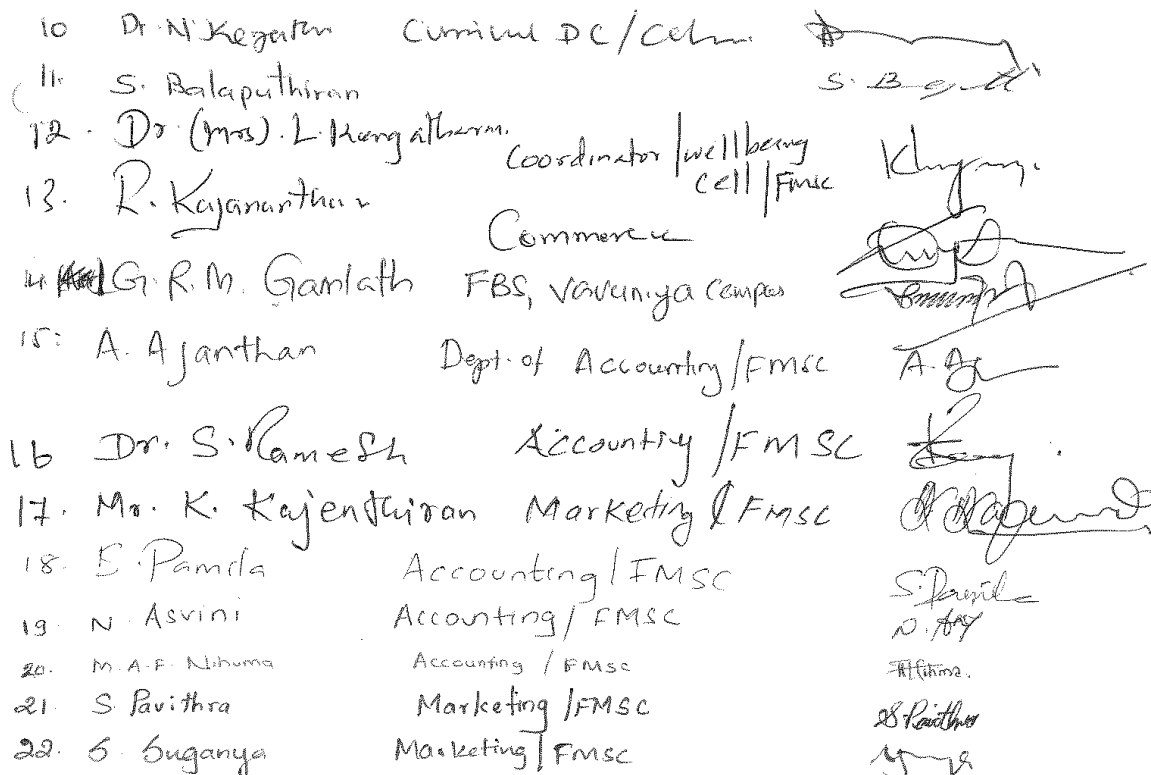 10 Dr. N. Kegatan DC/
11. S. Balaputhiran S. B
12. Dr (Mrs). L. Kengatharan. Coordinator/wellbeing cell/FMSC
13. R. Kajananthan Commerce
14 G. R. M. Gamlath FBS, Vavuniya Campus
15: A. Ajanthan Dept. of Accounting/FMSC A. Aj
16 Dr. S. Ramesh Accounting /FMSC
17. Mr. K. Kajenthiran Marketing / FMSC
18. E. Pamila Accounting/FMSC S. Pamila
19. N. Asvini Accounting/FMSC
20. M. A. F. Nihuma Accounting /FMSC
21. S Pavithra Marketing /FMSC S. Pavithra
22. S. Suganya Marketing/FMSC